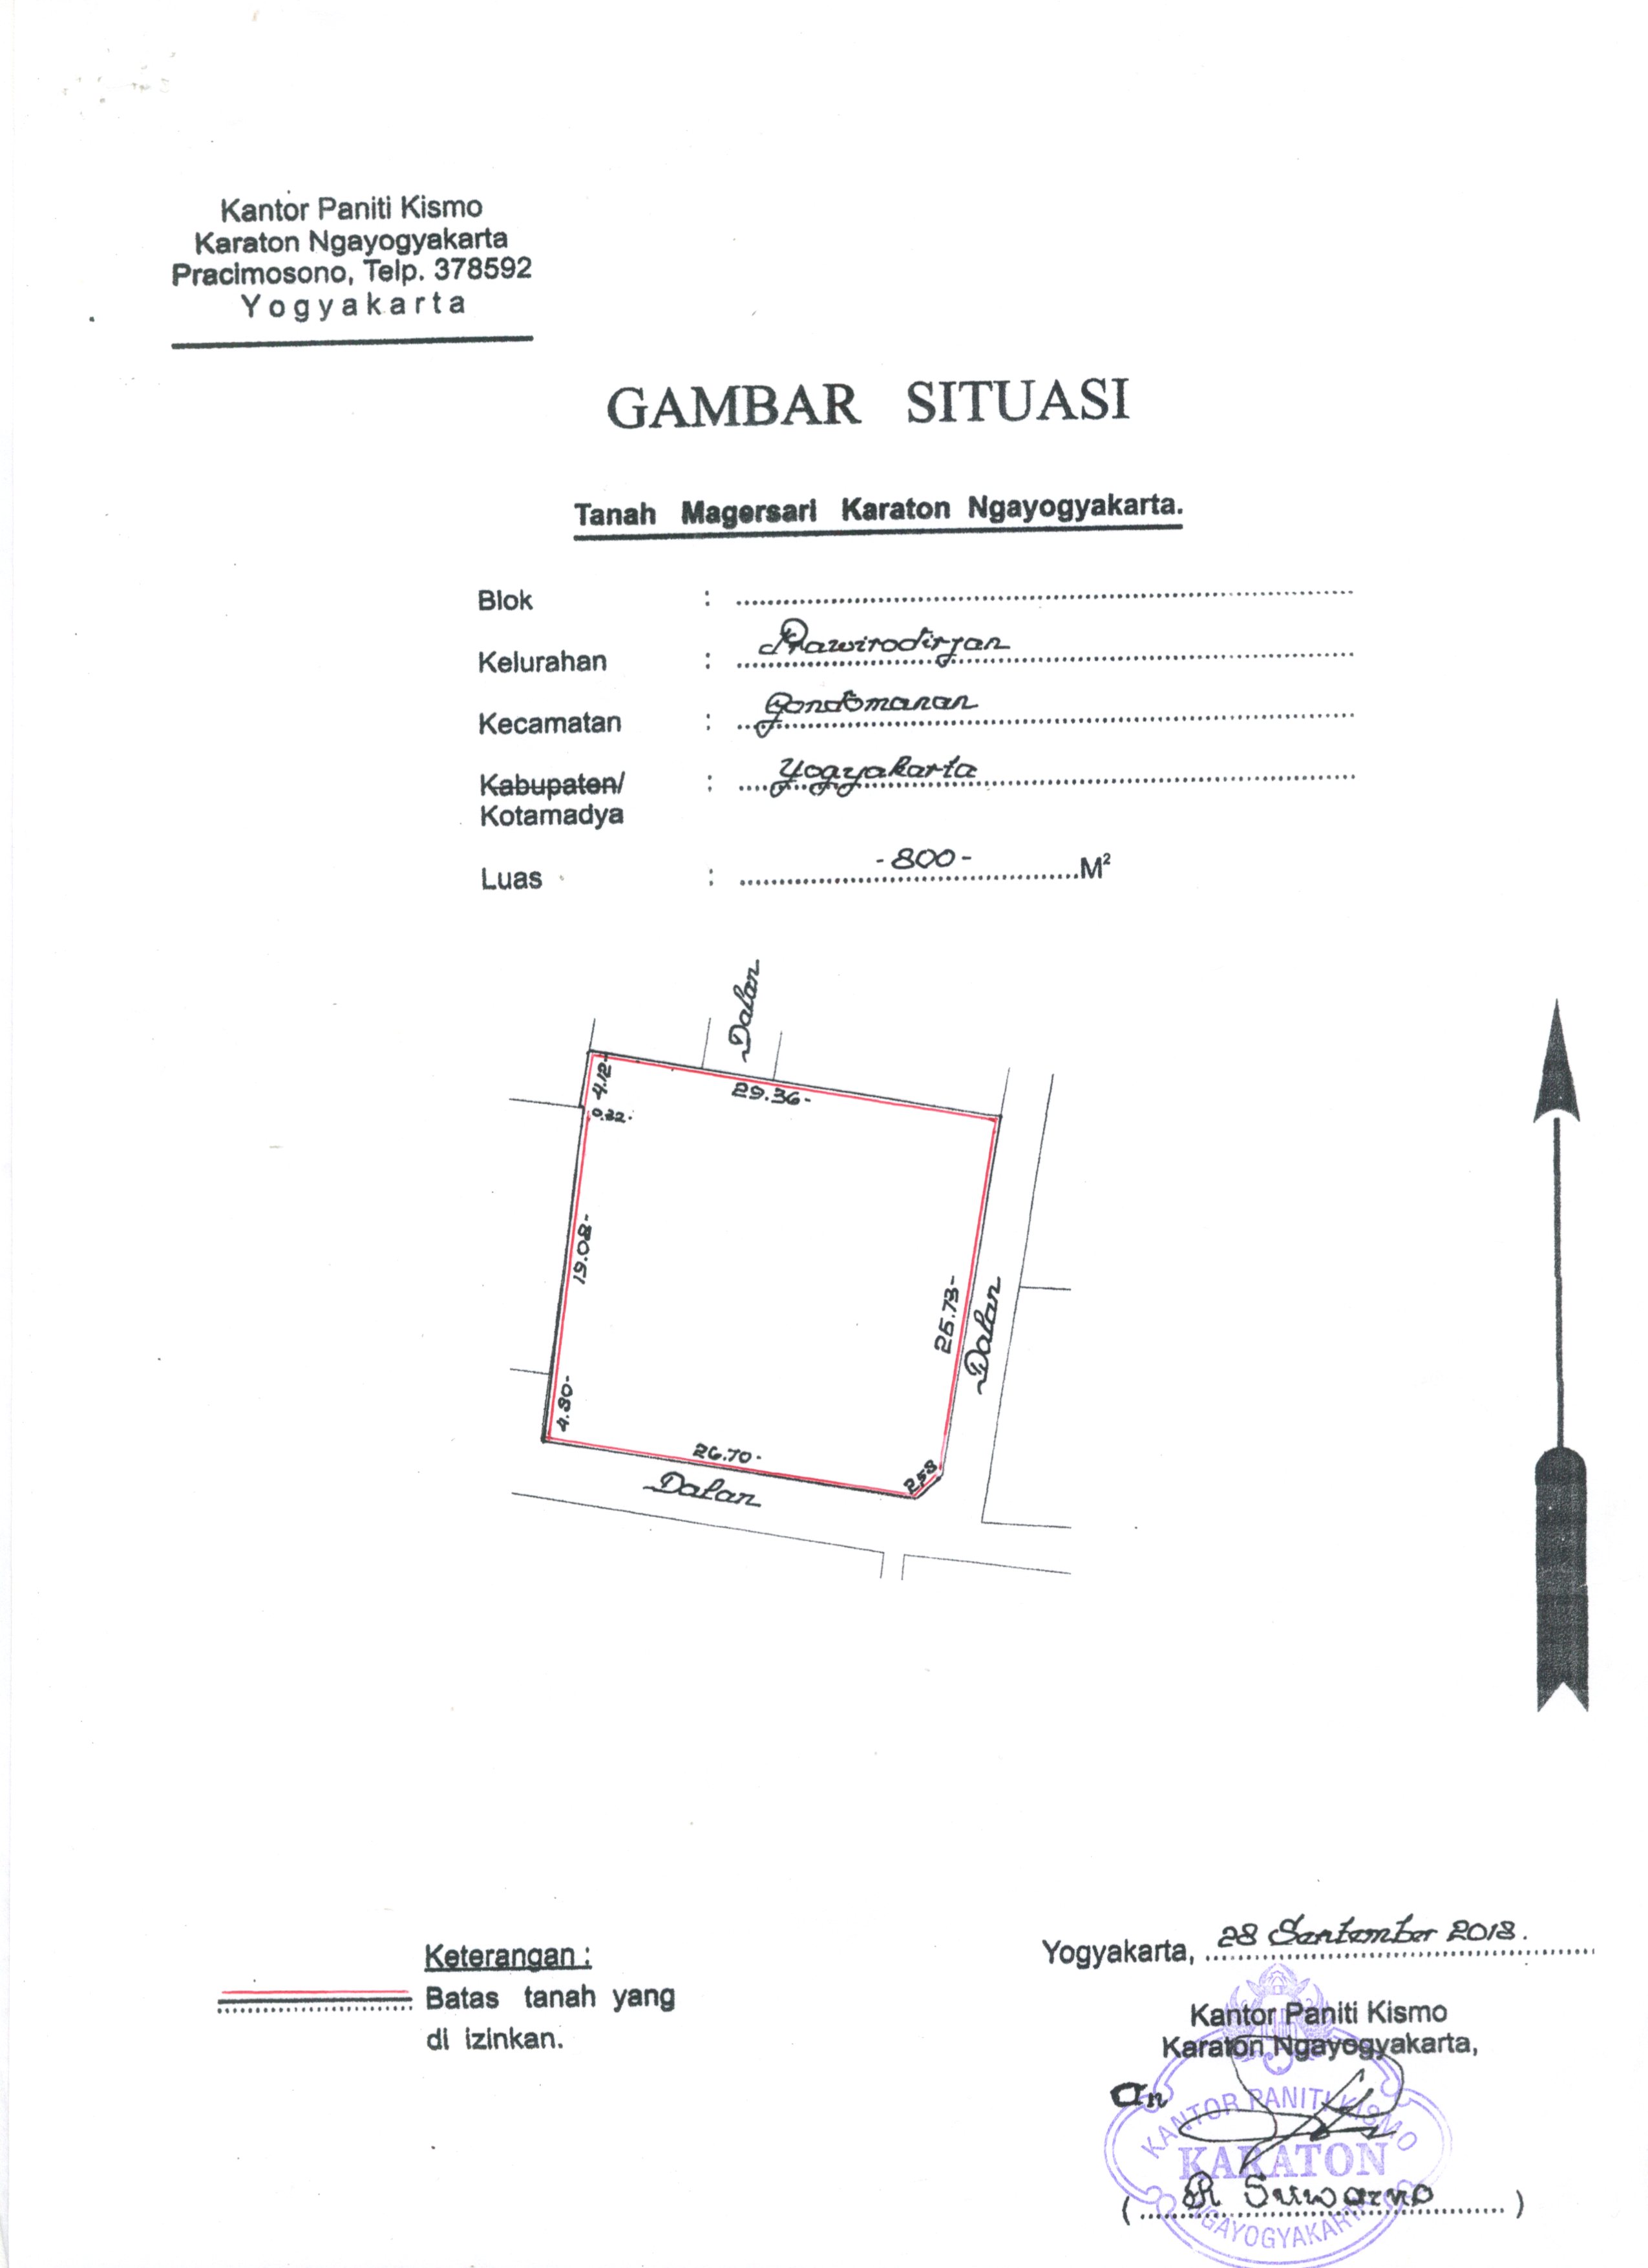 Kantor Paniti Kismo
Karaton Ngayogyakarta
Pracimosono, Telp. 378592
Yogyakarta
GAMBAR SITUASI
Tanah Magersari Karaton Ngayogyakarta.
Blok :
Kelurahan : Prawirodirjan
Kecamatan : Gondomanan
Kabupaten/ : Yogyakarta
Kotamadya
Luas : -800- M²
Dalan
4.12-
29.36-
0.32.
19.08-
25.73-
Dalan
4.80-
26.70-
2.58
Dalan
Keterangan :
Batas tanah yang
di izinkan.
Yogyakarta, 28 September 2018.
Kantor Paniti Kismo
Karaton Ngayogyakarta,
an
KANTOR PANITI KISMO
KARATON
NGAYOGYAKARTA
( R Suwarno )